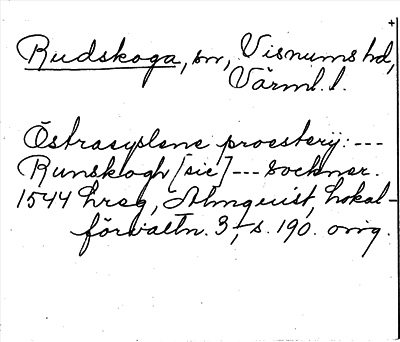 +
Rudskoga, sn, Visnums hd,
Värml. l.
Östrasyslene proesterij: ---
Runskogh [sic] --- sockner.
1544 hreg, Almquist, Lokal-
förvaltn. 3, s. 190. orig.